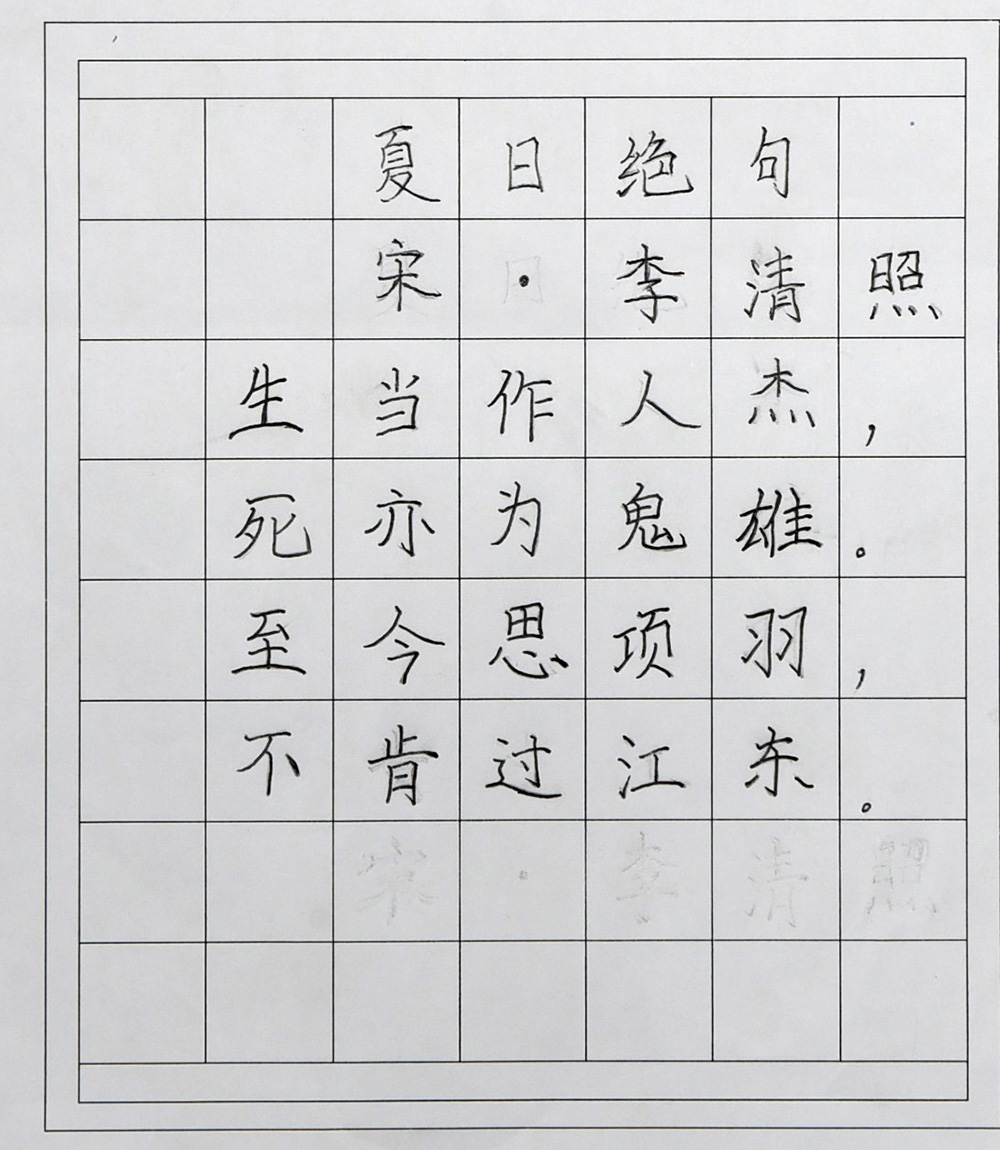 夏日绝句
宋·李清照
生当作人杰，
死亦为鬼雄。
至今思项羽，
不肯过江东。
宋·李清照